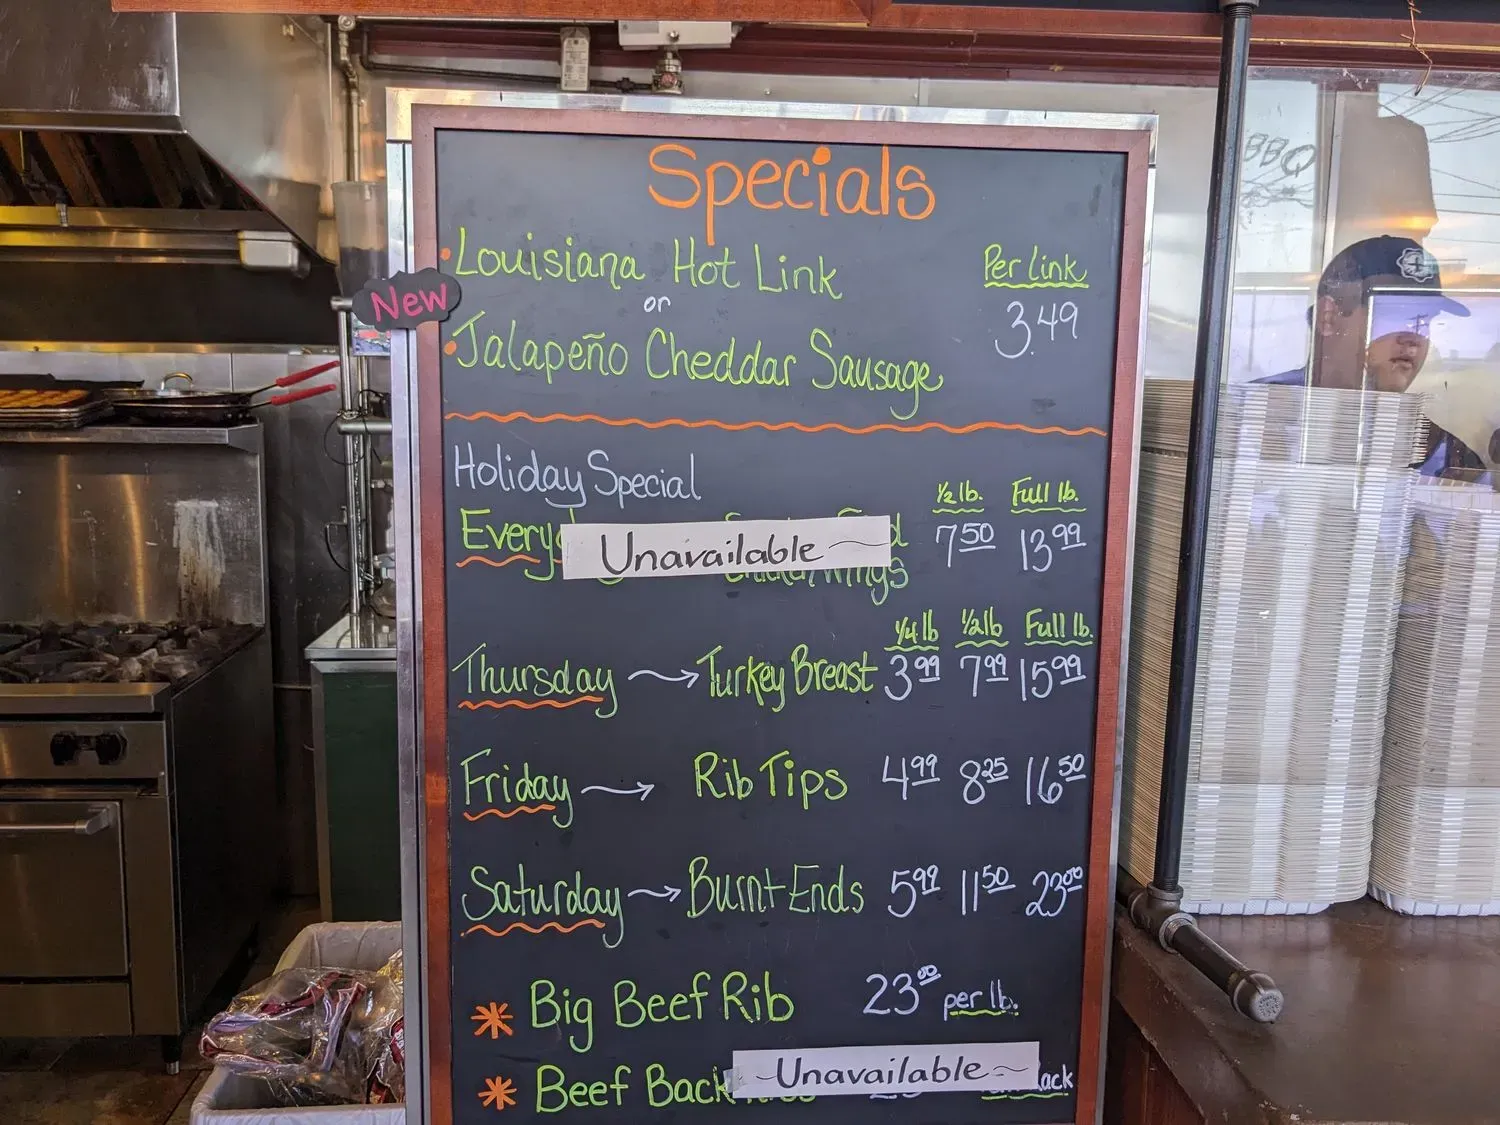 BBQ
Specials
Louisiana Hot Link
Per Link
New
or
3.49
Jalapeño Cheddar Sausage
Holiday Special
½ lb. Full lb.
Unavailable
7.50 13.99
Wings
¼ lb ½ lb Full lb.
Thursday → Turkey Breast 3.99 7.99 15.99
Friday → Rib Tips 4.99 8.25 16.50
Saturday → Burnt Ends 5.99 11.50 23.00
* Big Beef Rib 23.00 per lb.
* Beef Back ~Unavailable~